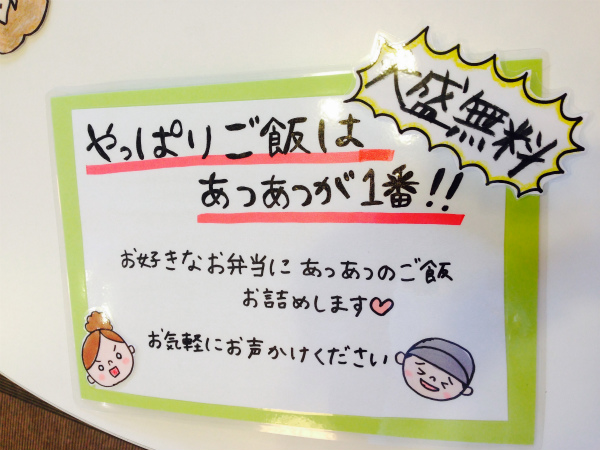 大盛無料
やっぱりご飯は
あつあつが1番!!
お好きなお弁当に あつあつのご飯
お詰めします♡
お気軽にお声かけください